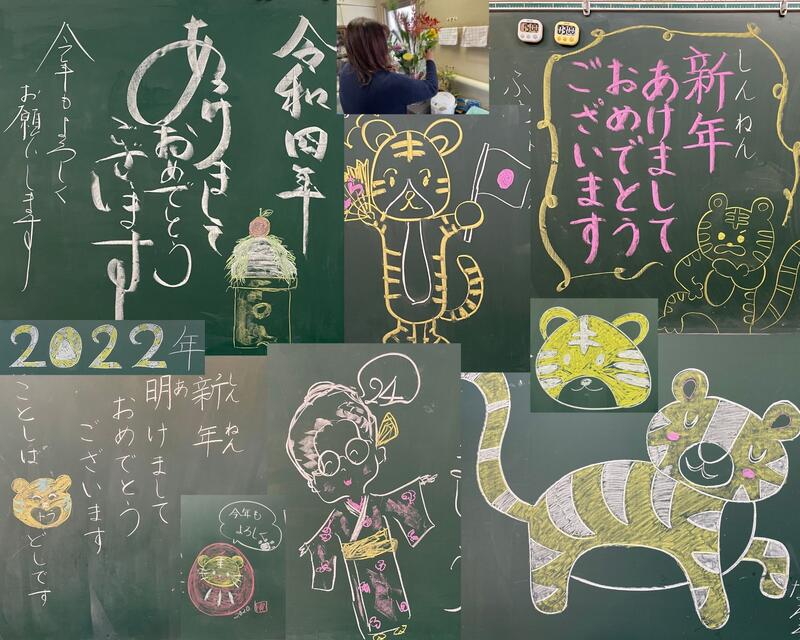 令和四年
あけまして
おめでとう
ございます
今年もよろしく
お願いします
しんねん
新年
あけまして
おめでとう
ございます
2022年
しんねん
新年
あ
明けまして
おめでとう
ございます
ことしは
トラ
どしです
今年も
よろしく
24
15:00